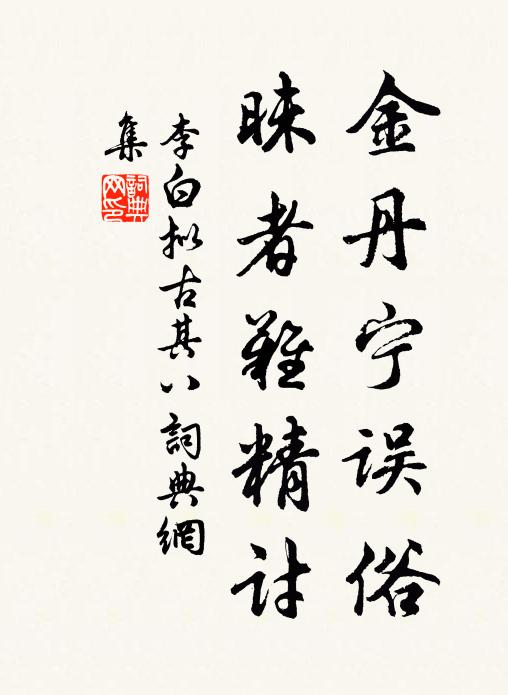 金丹宁误俗
昧者難精討
李白拟古其八 詞典網
集
詞典网印